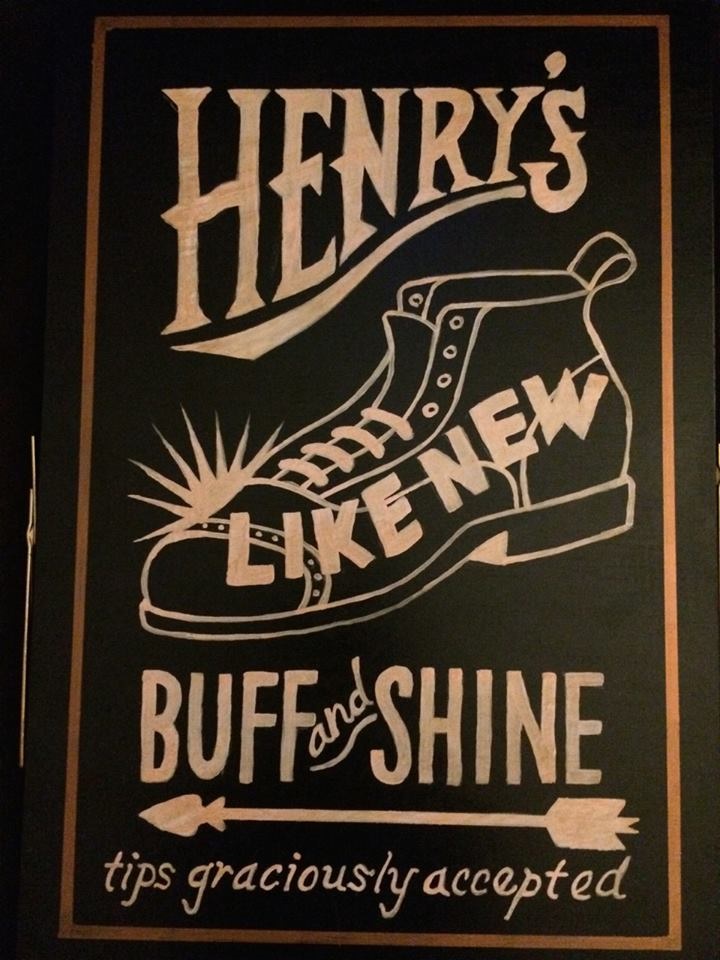 HENRY'S
LIKE NEW
BUFF and SHINE
tips graciously accepted